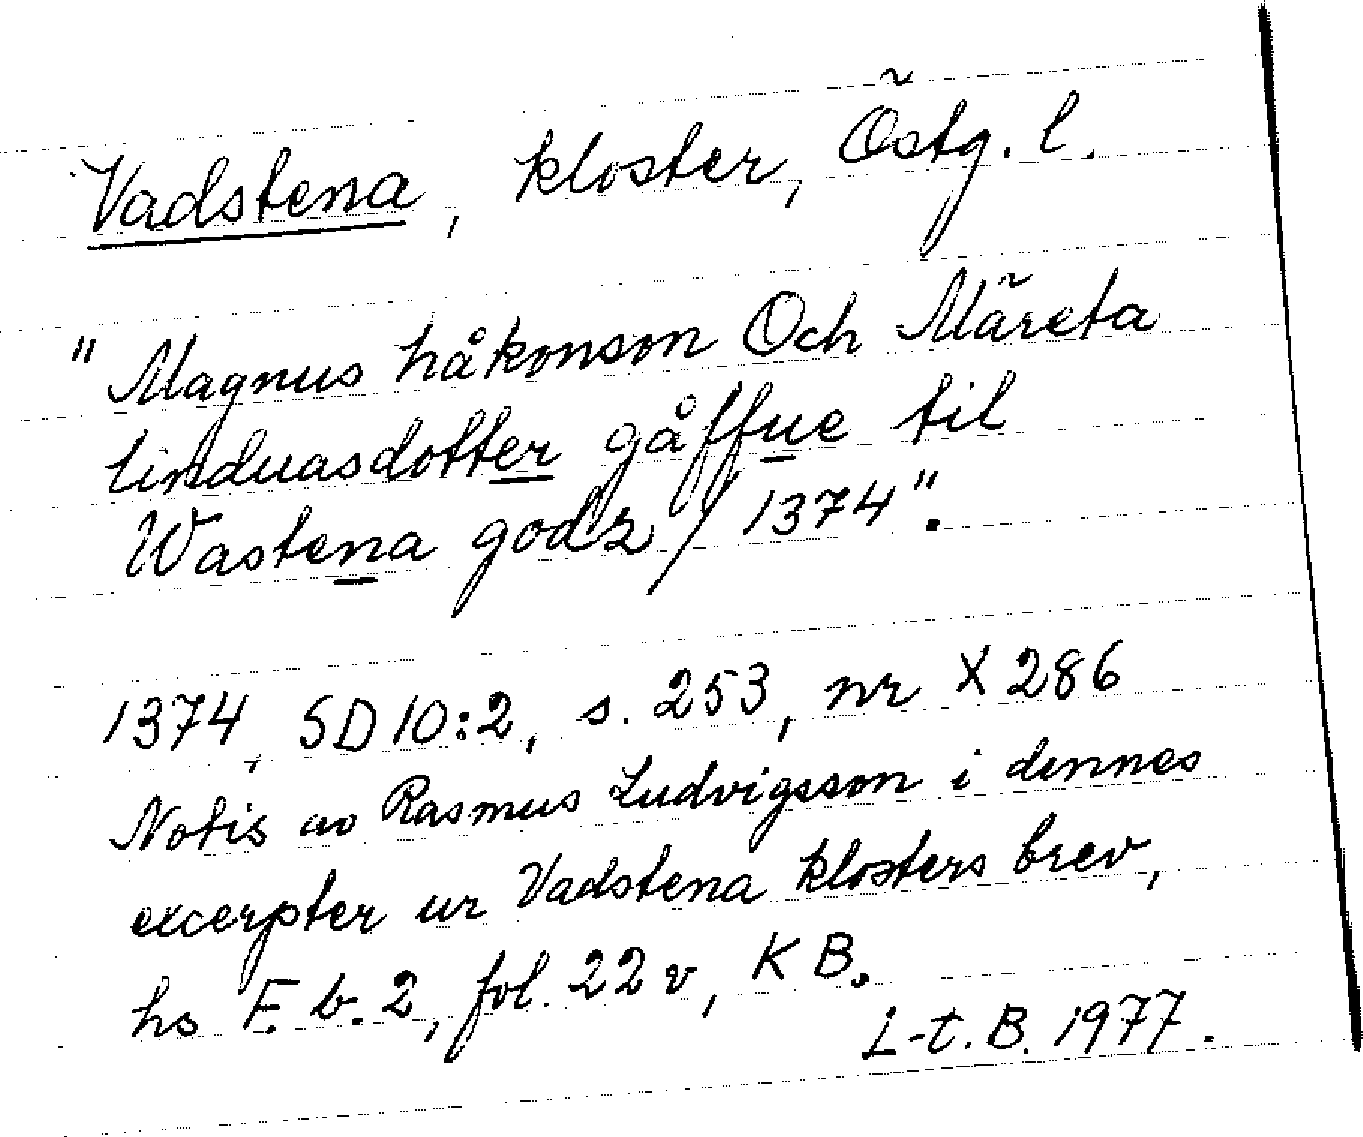 Vadstena, kloster, Östg. l.
"Magnus håkonson Och Märeta
linduasdotter gåffue til
Wastena godz / 1374".
1374, SD 10:2, s. 253, nr X 286
Notis av Rasmus Ludvigsson i dennes
excerpter ur Vadstena klosters brev,
hs F. b. 2, fol. 22 v, KB.
L-t. B. 1977.